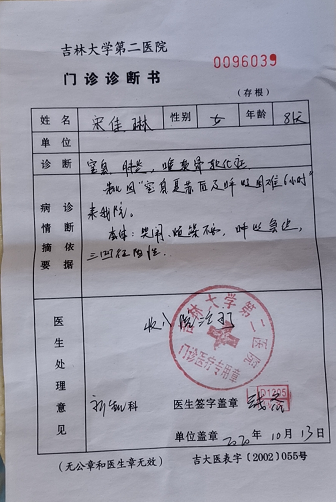 吉林大学第二医院
0096039
门诊诊断书
(存根)
姓名 宋佳琳 性别 女 年龄 8天
单位
诊断 窒息, 肺炎, 喉软骨软化症
病情摘要 诊断依据
来我院。
查体: 哭闹, 呼吸急促,
三凹征阳性
医生处理意见
收入院治疗
新生儿科
吉林大学第二医院
门诊医疗专用章
医生签字盖章
D1205
单位盖章 2020年10月13日
(无公章和医生章无效) 吉大医表字(2002)055号